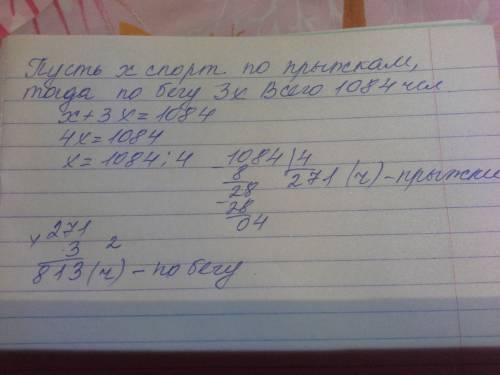 Пусть х спорт. по прыжкам,
тогда по бегу 3х Всего 1084 чел
х+3х=1084
4х=1084
х=1084:4
1084 4
8 271 (ч)-прыжки
28
28
04
х 271
3 2
813 (ч) - по бегу